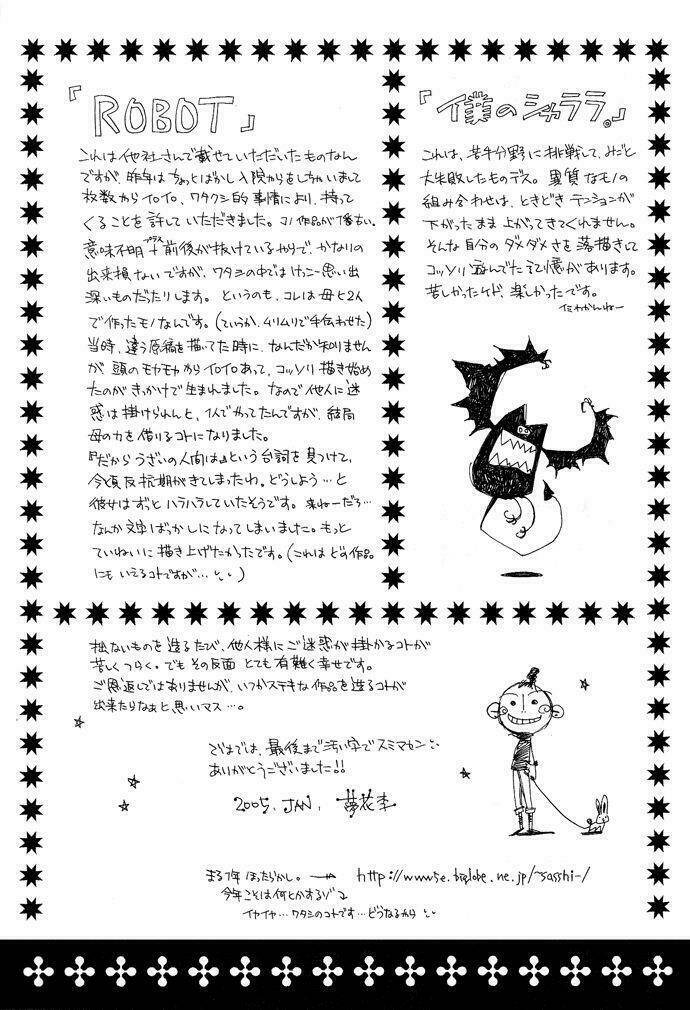 『ROBOT』
これは他社さんで載せていただいたものなん
ですが、昨年はちょっとばかし入院からをしちゃいまして
枚数からイロイロ、ワタクシ的事情により、持って
くることを許していただきました。コノ作品が1番古い。
意味不明プラス前後が抜けているやつで、かなりの
出来損ないですが、ワタシの中ではけっこー思い出
深いものだったりします。というのも、コレは母と2人
で作ったモノなんです。(ていうか、ムリムリで手伝わせた)
当時、違う原稿を描いてた時に、なんだか知りません
が頭のモヤモヤからイロイロあって、コッソリ描き始め
たのがきっかけで生まれました。なので他人に迷
惑は掛けられんと、1人でやってたんですが、結局
母の力を借りるコトになりました。
『だからうざいの人間は』という台詞を見つけて、
今頃反抗期がきてしまったわ。どうしよう…と
彼女はずっとハラハラしていたそうです。来ねーだろ…
なんか文字ばっかしになってしまいました。もっと
ていねいに描き上げたかったです。(これはどの作品
にもいえるコトですが…)
『僕のシャララ。』
これは、若干分野に挑戦して、みごと
大失敗したものデス。異質なモノの
組み合わせは、ときどきテンションが
下がったまま上がってきてくれません。
そんな自分のダメダメさを落描きして
コッソリ遊んでた記憶があります。
苦しかったケド、楽しかったです。
イミわかんねー
拙ないものを造るたび、他人様にご迷惑が掛かるコトが
苦しくつらく。でもその反面とても有難く幸せです。
ご恩返しではありませんが、いつかステキな作品を造るコトが
出来たらなぁと思いマス…。
でわでは、最後まで汚い字でスミマセン
ありがとうございました!!
2005. JAN. 夢花李
まる1年ほったらかし。→ http://www5e.biglobe.ne.jp/~sasshi-/
今年こそは何とかするゾ
イヤイヤ…ワタシのコトです…どうなるやら